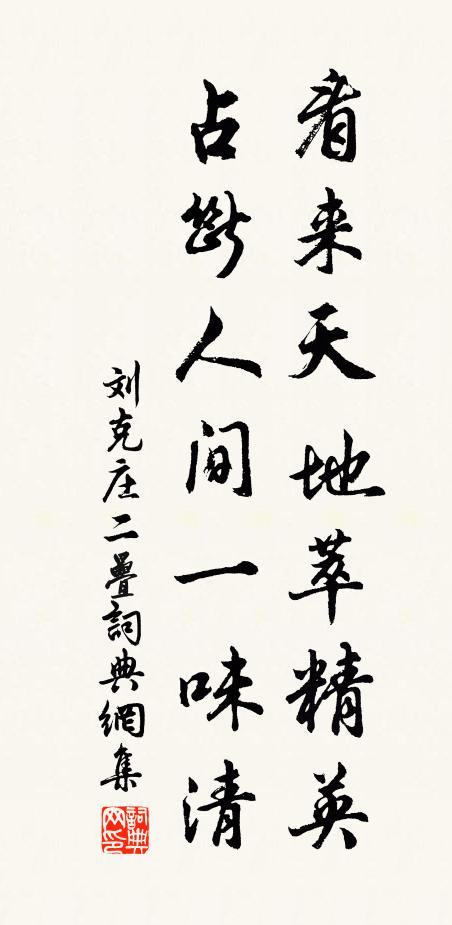 看来天地萃精英
占斷人间一味清
刘克庄二疊詞典網集
詞典
网印